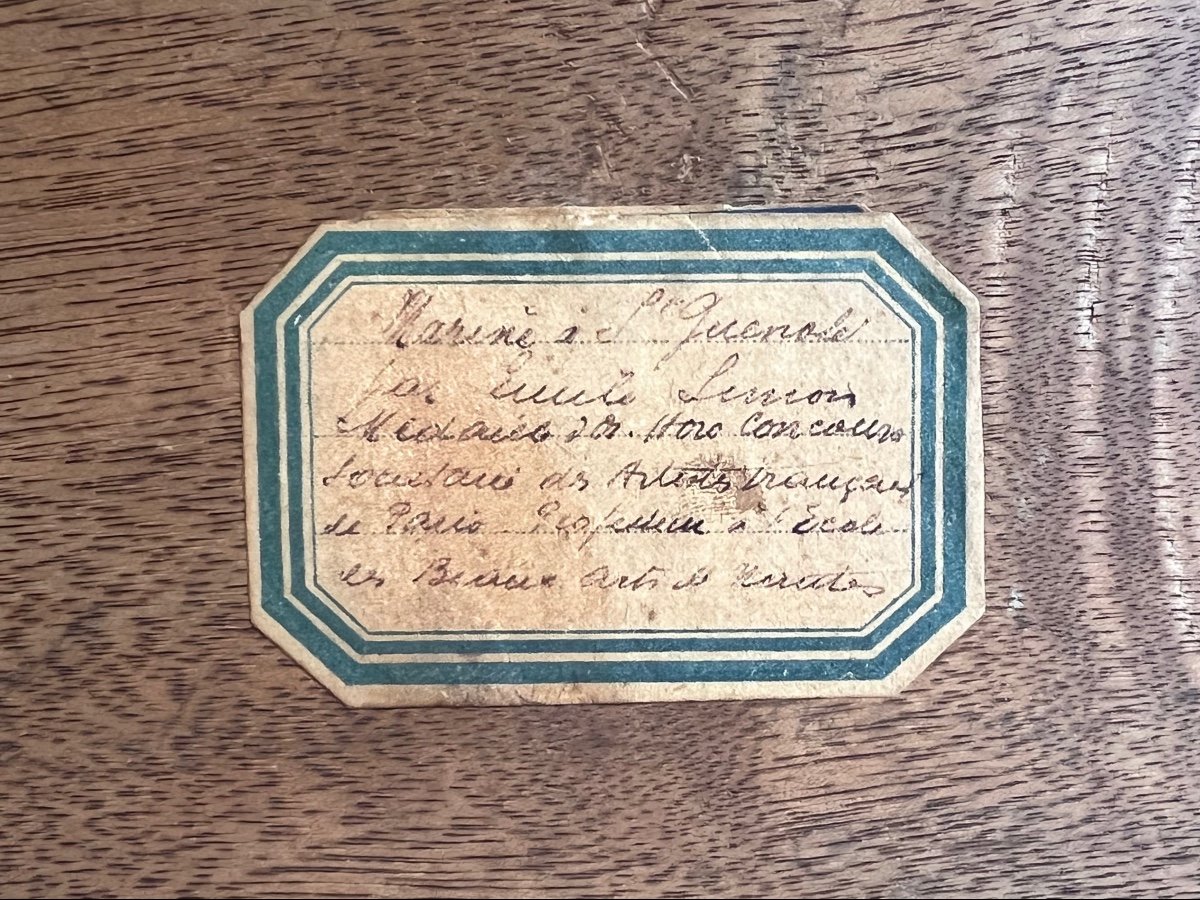 Marine à St Guenolé
par Emile Simon
Médaille d'Or. Hors Concours
Sociétaire des Artistes français
de Paris Professeur à l'Ecole
des Beaux Arts de Nantes